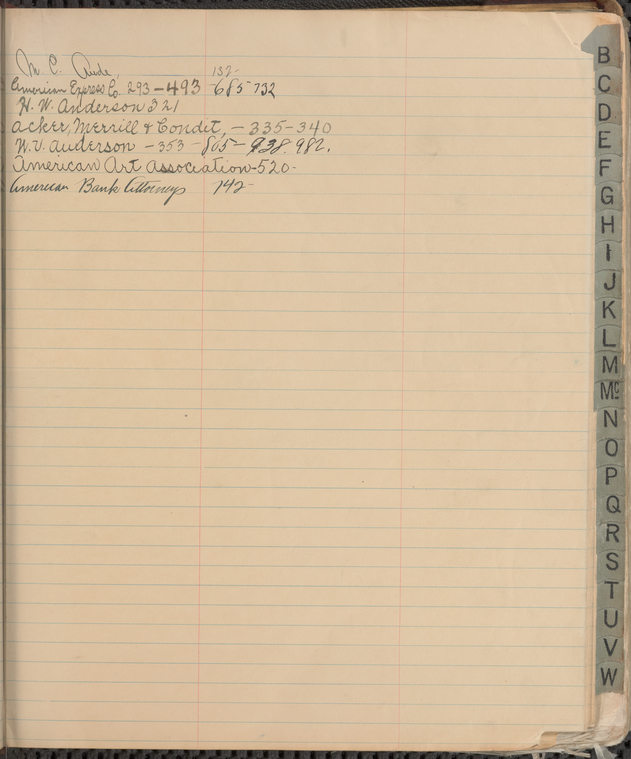 M. C. Aude, 132-
American Express Co. 293-493 -685-732
H. W. Anderson 321
Acker, Merrill & Condit, - 335-340
W. V. Anderson - 353 - 805- 938. 982.
American Art Association-520-
American Bank Attorneys 742-
B
C
D
E
F
G
H
I
J
K
L
M
Mc
N
O
P
Q
R
S
T
U
V
W